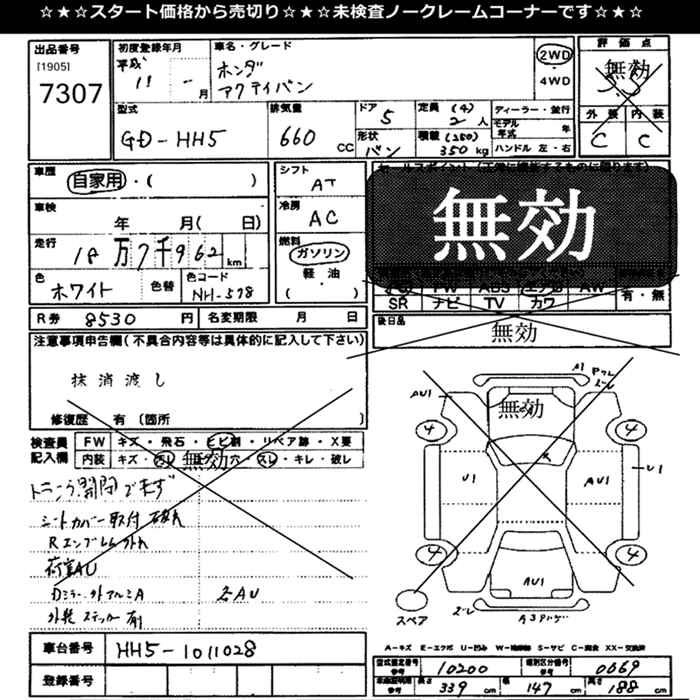 ☆★☆★スタート価格から売切り☆★☆★未検査ノークレームコーナーです☆★☆
出品番号 初度登録年月 車名・グレード 2WD 4WD 評価点
[1905] 平成 11 - 月 ホンダ 無効
7307 アクティバン
外装 内装
型式 排気量 ドア 定員 (4) ディーラー・並行 C C
GD-HH5 660 CC 5 2 人 モデル年式 年
形状 積載 (250) ハンドル 左・右
バン 350 kg
車歴 自家用・( ) シフト AT セールスポイント
車検 年 月( 日) 冷房 AC 無効
走行 18万7千962 km 燃料 ガソリン
軽・油
( )
色 ホワイト 色替 色コード NH-578
SR ナビ TV カワ 有・無
R券 8530 円 名変期限 月 日 後日品 無効
注意事項申告欄(不具合内容等は具体的に記入して下さい)
抹消渡し
修復歴 有(箇所 )
検査員記入欄 FW キズ・飛石・ヒビ割・リペア跡・X要
内装 キズ・ 穴・スレ・キレ・破レ
無効
シートカバー取付
Rエンブレム外れ
荷室AU
Dミラー外アルミA 各AU
外装ステッカー有
車台番号 HH5-1011028
登録番号
無効
A1
AU1
4 4
U1 AU1 U1
4 4
AU1
スペア
A-キズ E-エクボ U-凹み W-補修跡 S-サビ C-腐食 XX-交換済
型式指定番号 参考 10200 類別区分番号 参考 0069
車両証明欄 参考 長さ 339 cm 幅 147 cm 高さ 188 cm